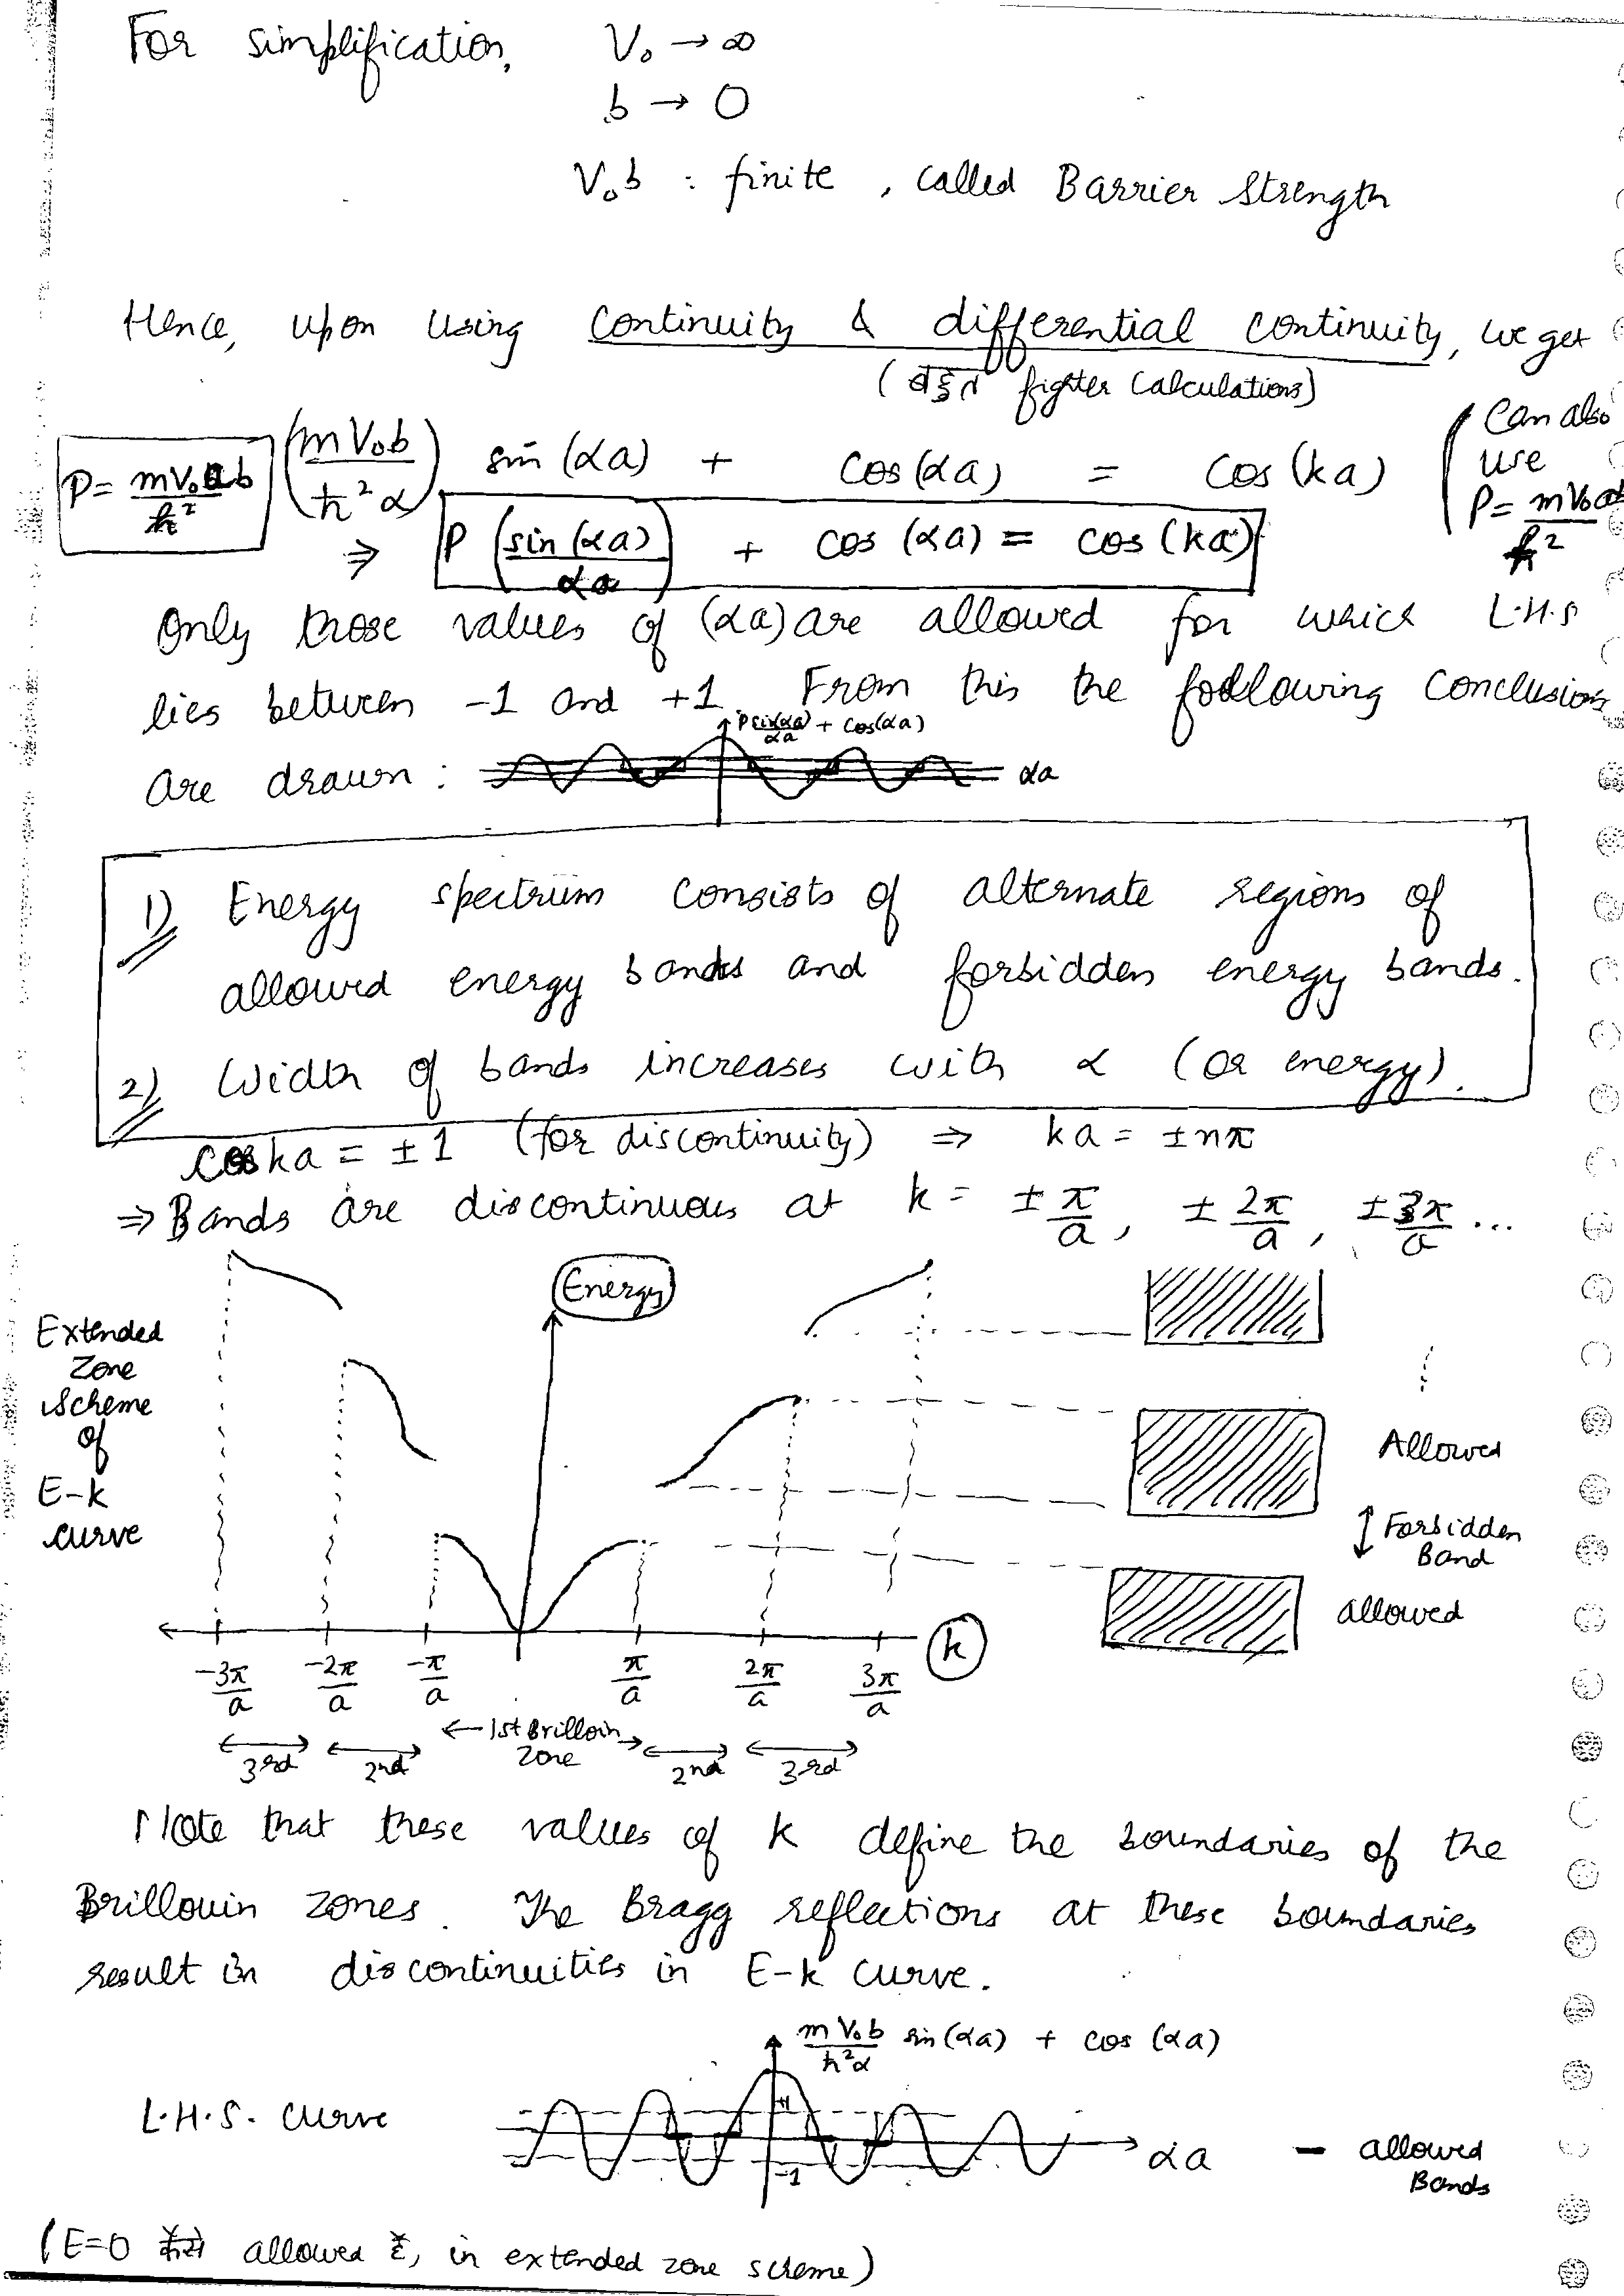 For simplification, V₀ → ∞
b → 0
V₀b : finite , called Barrier Strength
Hence, upon using continuity & differential continuity, we get
( बहुत fighter calculations)
P = mV₀ab/ħ² (mV₀b/ħ²α) sin (αa) + cos (αa) = cos (ka) (Can also use P = mV₀ab/ħ²
⇒ P (sin (αa)/αa) + cos (αa) = cos (ka)
Only those values of (αa) are allowed for which L.H.S
lies between -1 and +1. From this the following conclusions
P sin(αa)/αa + cos(αa)
are drawn : αa
1) Energy spectrum consists of alternate regions of
allowed energy bands and forbidden energy bands.
2) Width of bands increases with α (or energy).
cos ka = ±1 (for discontinuity) ⇒ ka = ±nπ
⇒ Bands are discontinuous at k = ±π/a, ±2π/a, ±3π/a ...
Energy
Extended
Zone
Scheme
of
E-k
curve
Allowed
Forbidden
Band
allowed
k
-3π/a -2π/a -π/a π/a 2π/a 3π/a
3rd 2nd ← 1st Brilloin Zone → 2nd 3rd
Note that these values of k define the boundaries of the
Brillouin zones. The Bragg reflections at these boundaries
result in discontinuities in E-k curve.
mV₀b/ħ²α sin (αa) + cos (αa)
L.H.S. curve
+1
-1
αa
- allowed
Bands
(E=0 कैसे allowed है, in extended zone scheme)